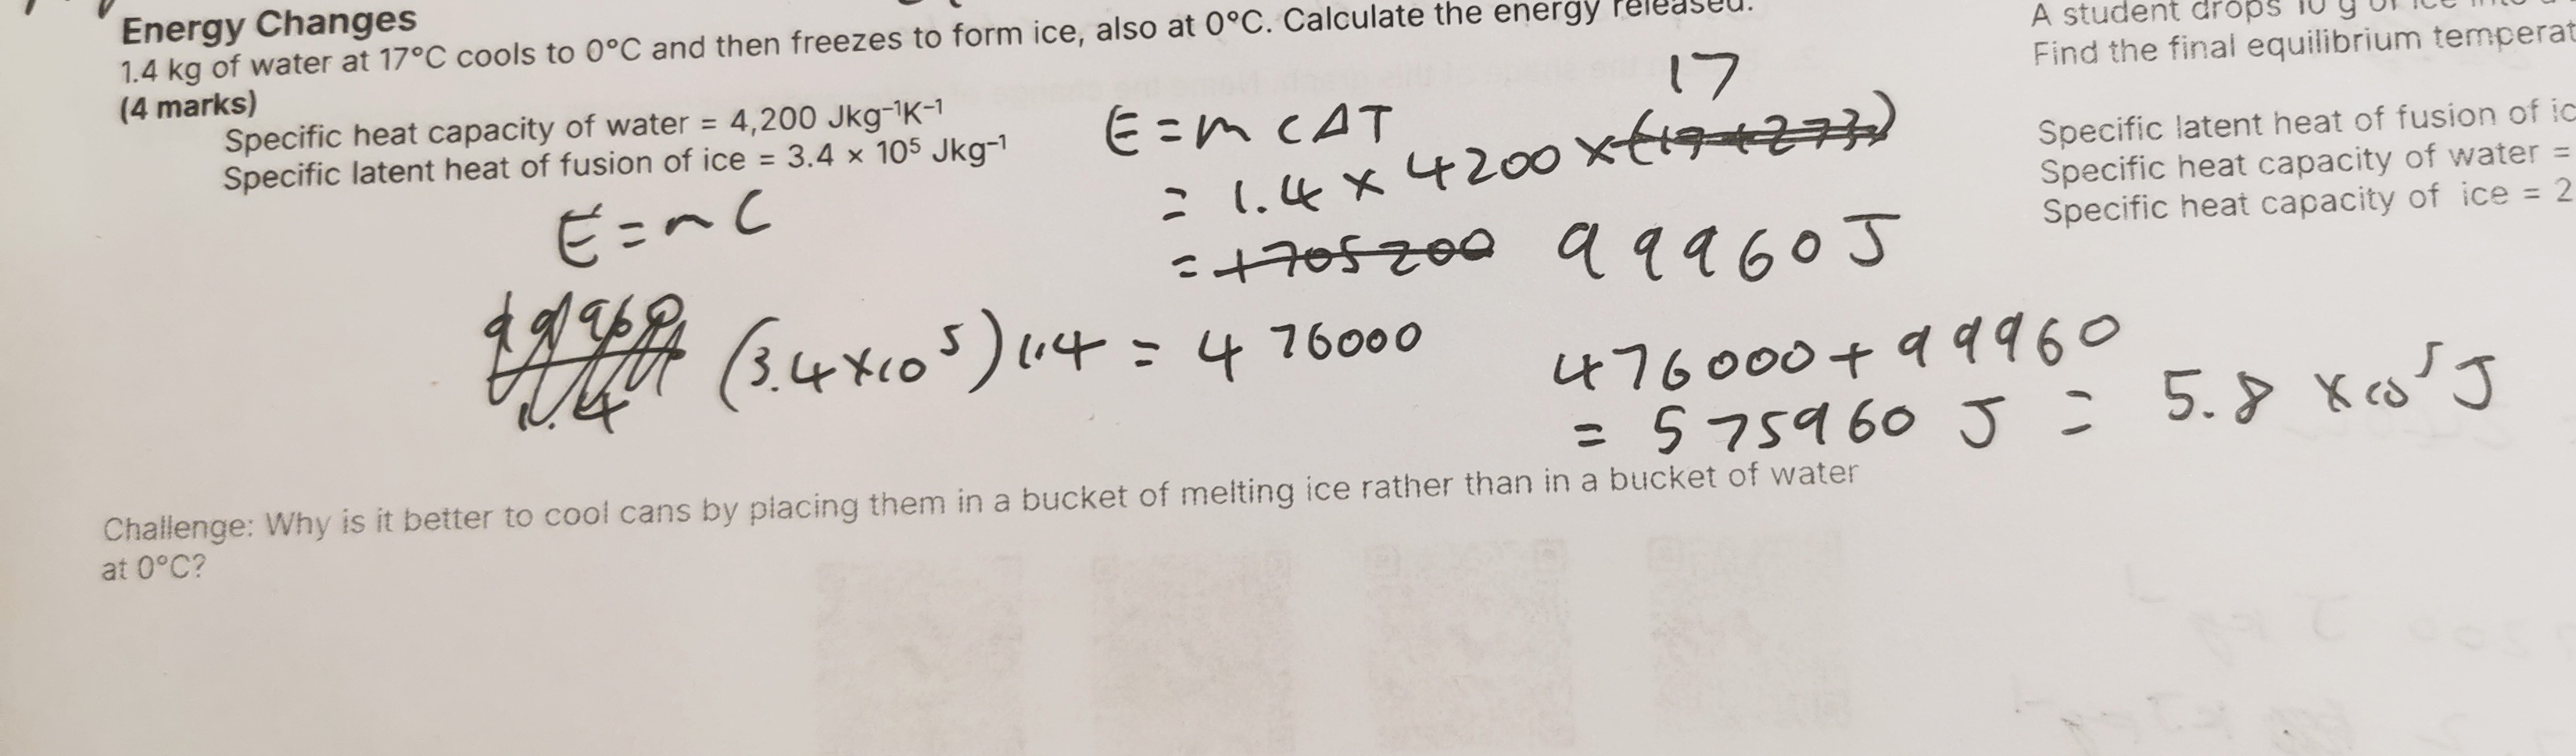 Energy Changes
1.4 kg of water at 17°C cools to 0°C and then freezes to form ice, also at 0°C. Calculate the energy released.
(4 marks)
Specific heat capacity of water = 4,200 Jkg⁻¹K⁻¹
Specific latent heat of fusion of ice = 3.4 × 10⁵ Jkg⁻¹
E = m c
E = m c Δ T
17
= 1.4 × 4200 × (17+273)
= 1705200 99960 J
99960
1.4
(3.4 × 10⁵) 1.4 = 476000
476000 + 99960
= 575960 J = 5.8 × 10⁵ J
Challenge: Why is it better to cool cans by placing them in a bucket of melting ice rather than in a bucket of water
at 0°C?
A student drops 10 g of ice into a
Find the final equilibrium temperat
Specific latent heat of fusion of ic
Specific heat capacity of water =
Specific heat capacity of ice = 2